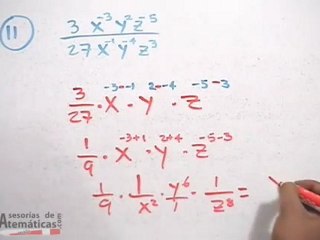 11
3 x⁻³ y² z⁻⁵
27 x⁻¹ y⁻⁴ z³
3/27 · x⁻³⁻⁻¹ · y²⁻⁻⁴ · z⁻⁵⁻³
1/9 · x⁻³⁺¹ · y²⁺⁴ · z⁻⁵⁻³
1/9 · 1/x² · y⁶/1 · 1/z⁸ =
Asesorias de
Matemáticas.com